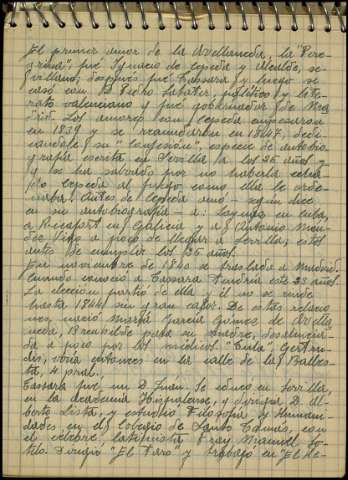 El primer amor de la Avellaneda, la "Pere-
grina", fué Ignacio de Cepeda y Alcalde, se-
villano; después fué Tassara y luego se
casó con D. Pedro Sabater, político y lite-
rato valenciano y fué gobernador de Ma-
drid. Los amores con Cepeda empezaron
en 1839 y se reanudaron en 1847, dedi-
cándole su "Confesión", especie de autobio-
grafía escrita en Sevilla a los 25 años y
y se ha salvado por no haberla echa-
do Cepeda al fuego como ella le orde-
naba. Antes de Cepeda amó - según dice
en su autobiografía - a: Loynaz en Cuba,
a Ricafort en Galicia y a Antonio Mén-
dez Vigo a poco de llegar a Sevilla; esto
antes de cumplir los 25 años.
En noviembre de 1840 se traslada a Madrid.
Cuando conoció a Tassara tendría este 23 años.
La elección partió de ella y él no se rinde
hasta 1844, su gran amor. De estas relacio-
nes, nació María García Gómez de Avella-
neda, Brenhilde para su madre, desahucia-
da a poco por los médicos. "Tula", Gertru-
dis, vivía entonces en la calle de la Balles-
ta, 4 pral.
Tassara fué un D. Juan. Se educó en Sevilla,
en la academia Hispalense, que dirigía D. Al-
berto Lista, y estudió Filosofía y Humani-
dades en el Colegio de Santo Tomás, con
el célebre latinista Fray Manuel So-
telo. Dirigió "El Faro" y trabajó en "El He-